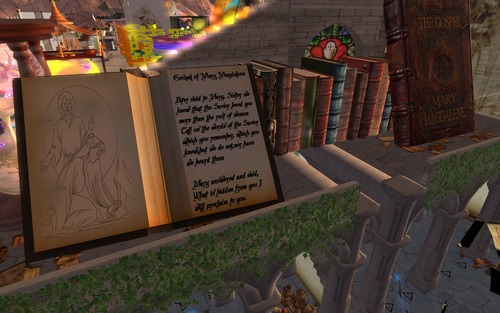 Gospel of Mary Magdalene
Peter said to Mary, Sister we
know that the Savior loved you
more than the rest of women
Tell us the words of the Savior
which you remember, which you
know, but we do not, nor have
we heard them
Mary answered and said,
What is hidden from you I
will proclaim to you.
THE GOSPEL
MARY
MAGDALENE